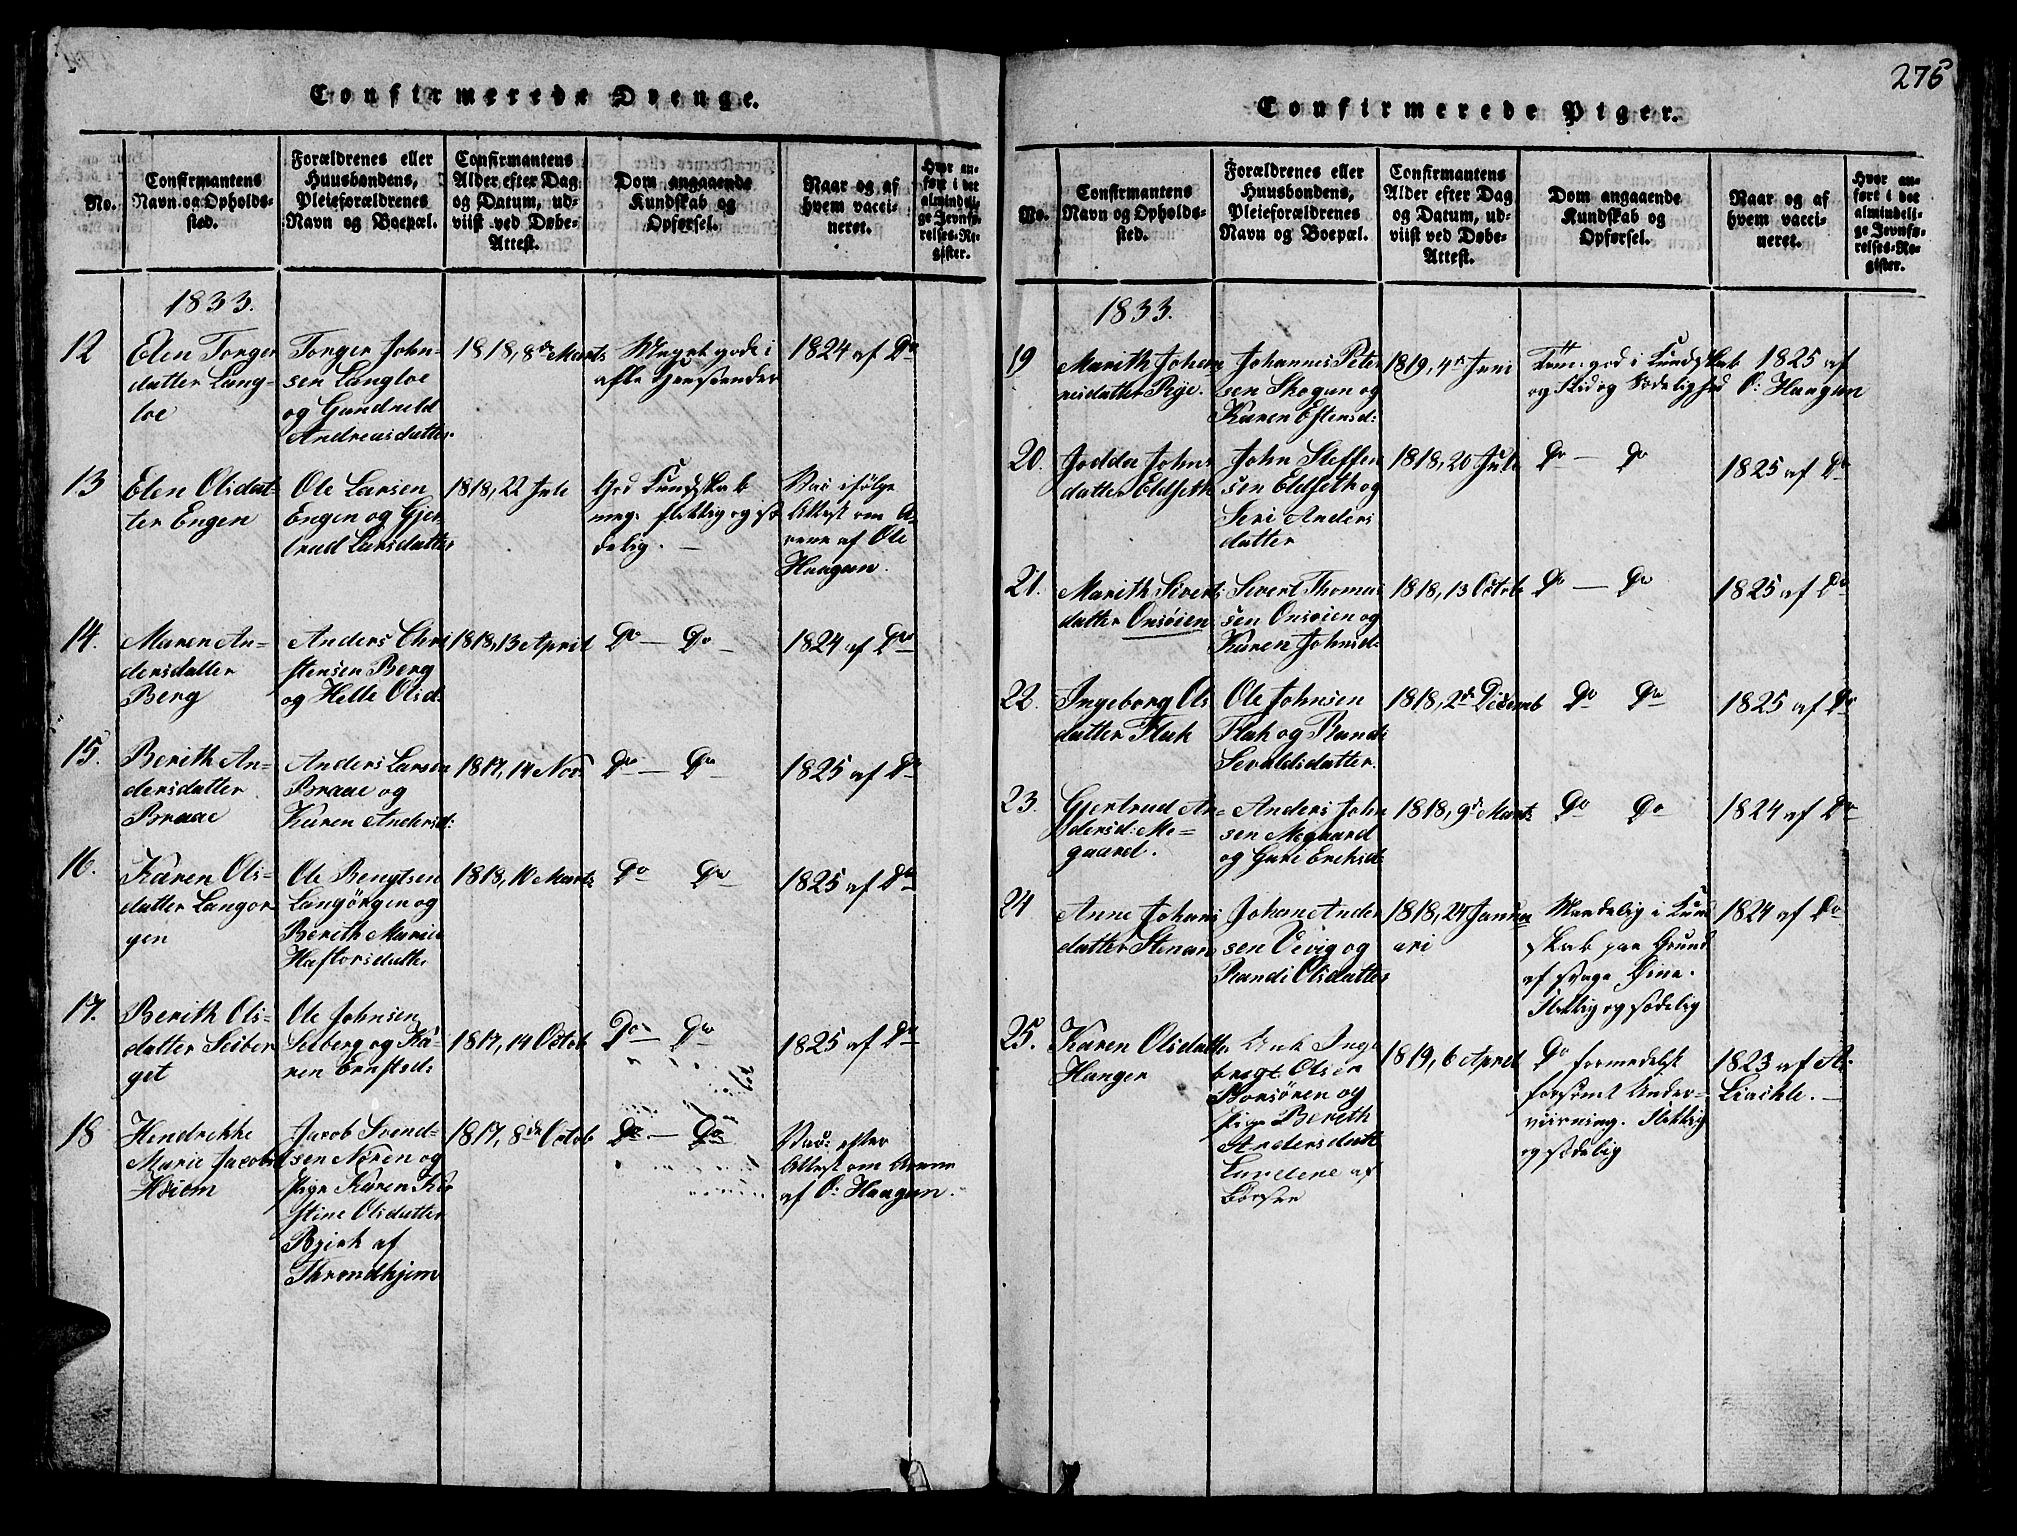 Confirmerede Drenge.
No.
Confirmantens
Navn og Opholds-
sted.
Forældrenes eller
Huusbondens,
Pleieforældrenes
Navn og Boepæl.
Confirmantens
Alder efter Dag
og Datum, ud-
viist ved Døbe-
Attest.
Dom angaaende
Kundskab og
Opførsel.
Naar og af
hvem vacci-
neret.
Hvor an-
ført i det
almindeli-
ge Jevnfø-
relses-Re-
gister.
1833.
12
Elen Torger
datter Lang-
loe
Torger John-
sen Langloe
og Gundnild
Andreasdatter
1818, 8de Marts
Meget gode i
alle Henseender
1824 af Do
13
Elen Olsdat-
ter Engen
Ole Larsen
Engen og Gjer
trud Larsdatter
1818, 22 Juli
God Kundskab
meg. flittig og sæ
delig. —
Vac. ifølge
Attest om
af Ole
Haagan.
14.
Maren An=
dersdatter
Berg
Anders Chri
stensen Berg
og Helle Olsd:
1818, 13 April
Do — Do
1824 af Do
15.
Berith An=
dersdatter
Braae
Anders Larsen
Braae og
Karen Andersd:
1817, 14 Nov:
Do — Do
1825 af Do
16.
Karen Ols=
datter Langor
gen
Ole Bengtsen
Langørgen og
Berith Marie
Haftorsdatter
1818, 10 Marts
Do Do
1825 af Do
17.
Berith Ols=
datter Seiber
get
Ole Johnsen
Selberg og Ka-
ren Ernstsd:
1817, 14 Octob
Do Do
1825 af Do
18
Hendrikke
Marie Jacobs
Høiem
Jacob Svend-
sen Noren og
Pige Karen Kir
stine Olsdatter
Bjerk af
Throndhjem
1817, 8de Octob
Do — Do
Vac: efter
Attest om Arene
af O: Haagan.
276
Confirmerede Piger.
No.
Confirmantens
Navn og Opholds-
sted.
Forældrenes eller
Huusbondens,
Pleieforældrenes
Navn og Boepæl.
Confirmantens
Alder efter Dag
og Datum, ud-
viist ved Døbe-
Attest.
Dom angaaende
Kundskab og
Opførsel.
Naar og af
hvem vacci-
neret.
Hvor an-
ført i det
almindeli-
ge Jevnfø-
relses-Re-
gister.
1833.
19
Marith Johan
nisdatter Rye.
Johannes Peter
sen Skogan og
Karen Estensd:
1819, 4de Juni
god i Kundskab
og Flid og Sædelighed
1825 af
O: Haagan
20.
Jodda Johns
datter Eldseth
John Steffen
sen Eldseth og
Seri Anders
datter
1818, 20 Juli
Do — Do
1825 af Do
21.
Marith Siverts
datter Onsøien
Sivert Thomas
sen Onsøien og
Karen Johnsd:
1818, 13 Octob
Do — Do
1825 af Do
22.
Ingeborg Ols
datter Flak
Ole Johnsen
Flak og Rand:
Sevaldsdatter.
1818, 2de Decemb
Do Do
1825 af Do
23.
Gjertrud An=
dersd: Mo=
gaard.
Anders John
sen Mogaard
og Guri Ericksd:
1818, 9de Marts
Do Do
1824 af Do
24
Anne Johans
datter Stenan
Johan Ander
sen Vevig og
Randi Olsdatter
1818, 24 Janu
ari
Maadelig i Kund
skab paa Grund
af svage Øine.
Flittig og sædelig
1824 af Do
25.
Karen Olsdatter
Hanger
Enk Inge
bregt Olsen
Borsøren og
Pige Bereth
Andersdatt
Lundene af
Børsen
1819, 6 April
Do formedelst
forsømt Under-
viisning. Flittig
og sædelig
1823 af A.
Liaekle. —